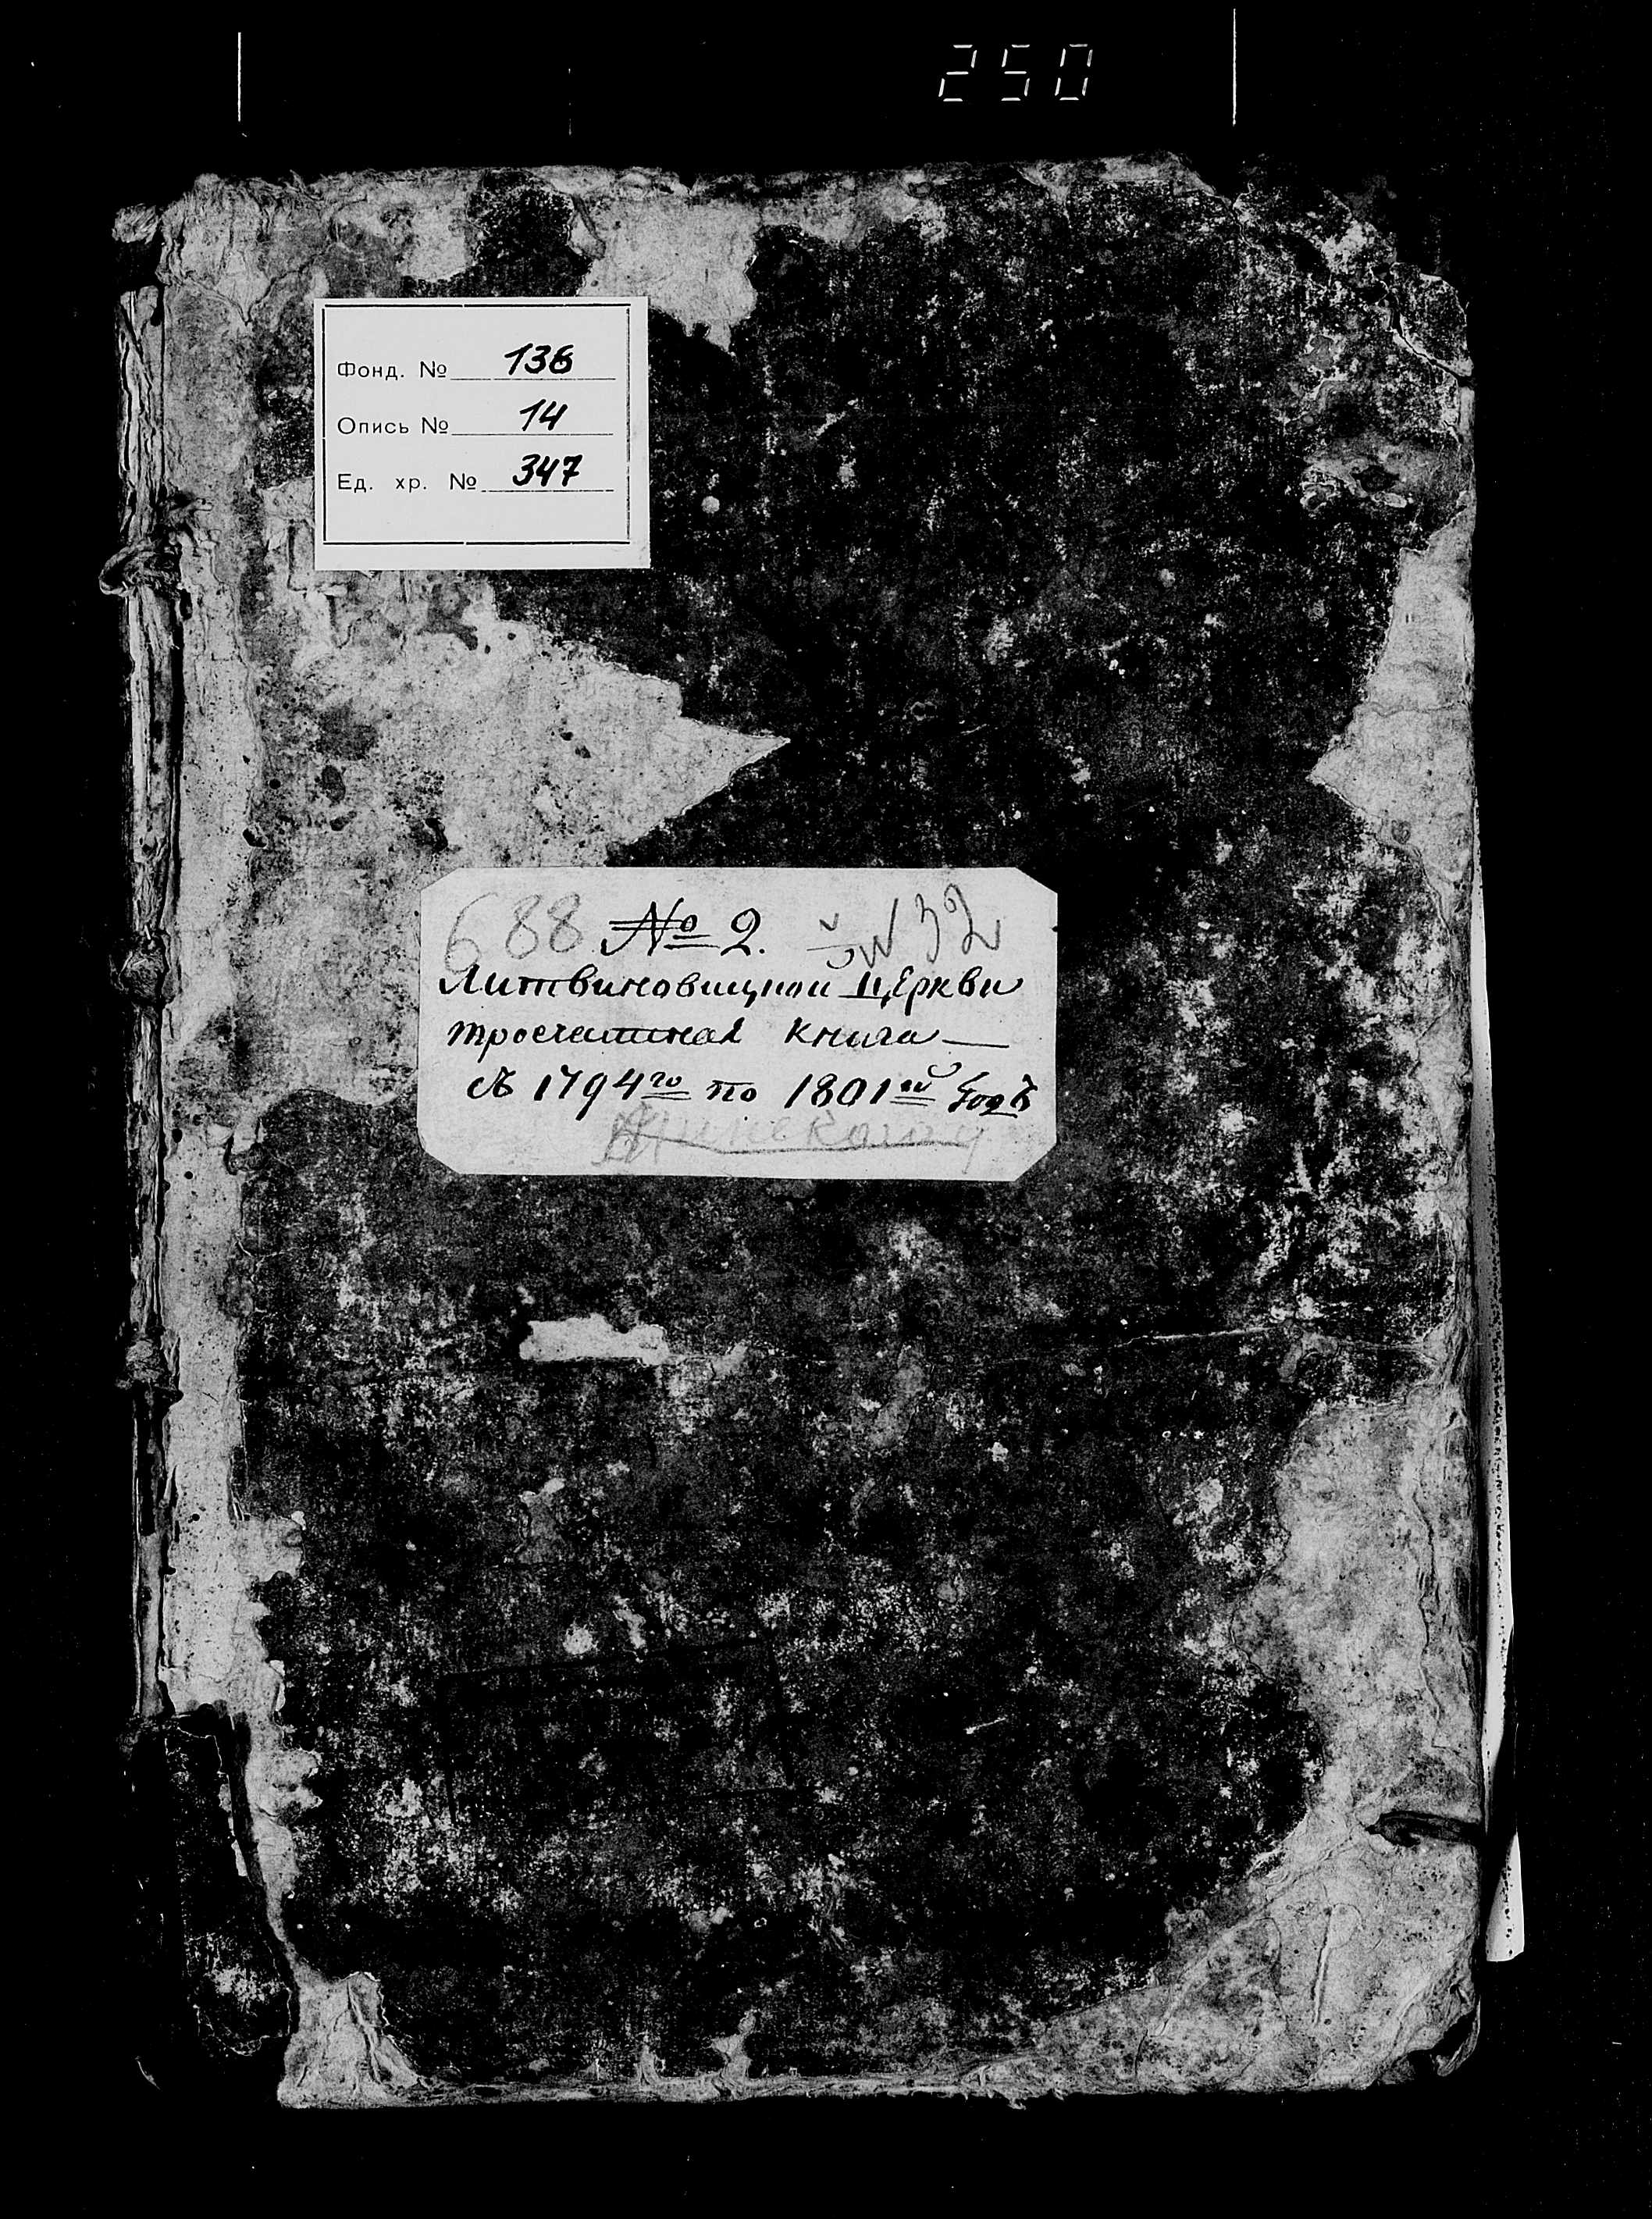 250
Фонд. № 136
Опись № 14
Ед. хр. № 347
688 № 2. 32
Литвиновицкой Церкви
троечастная книга —
Съ 1794го по 1801й Годъ